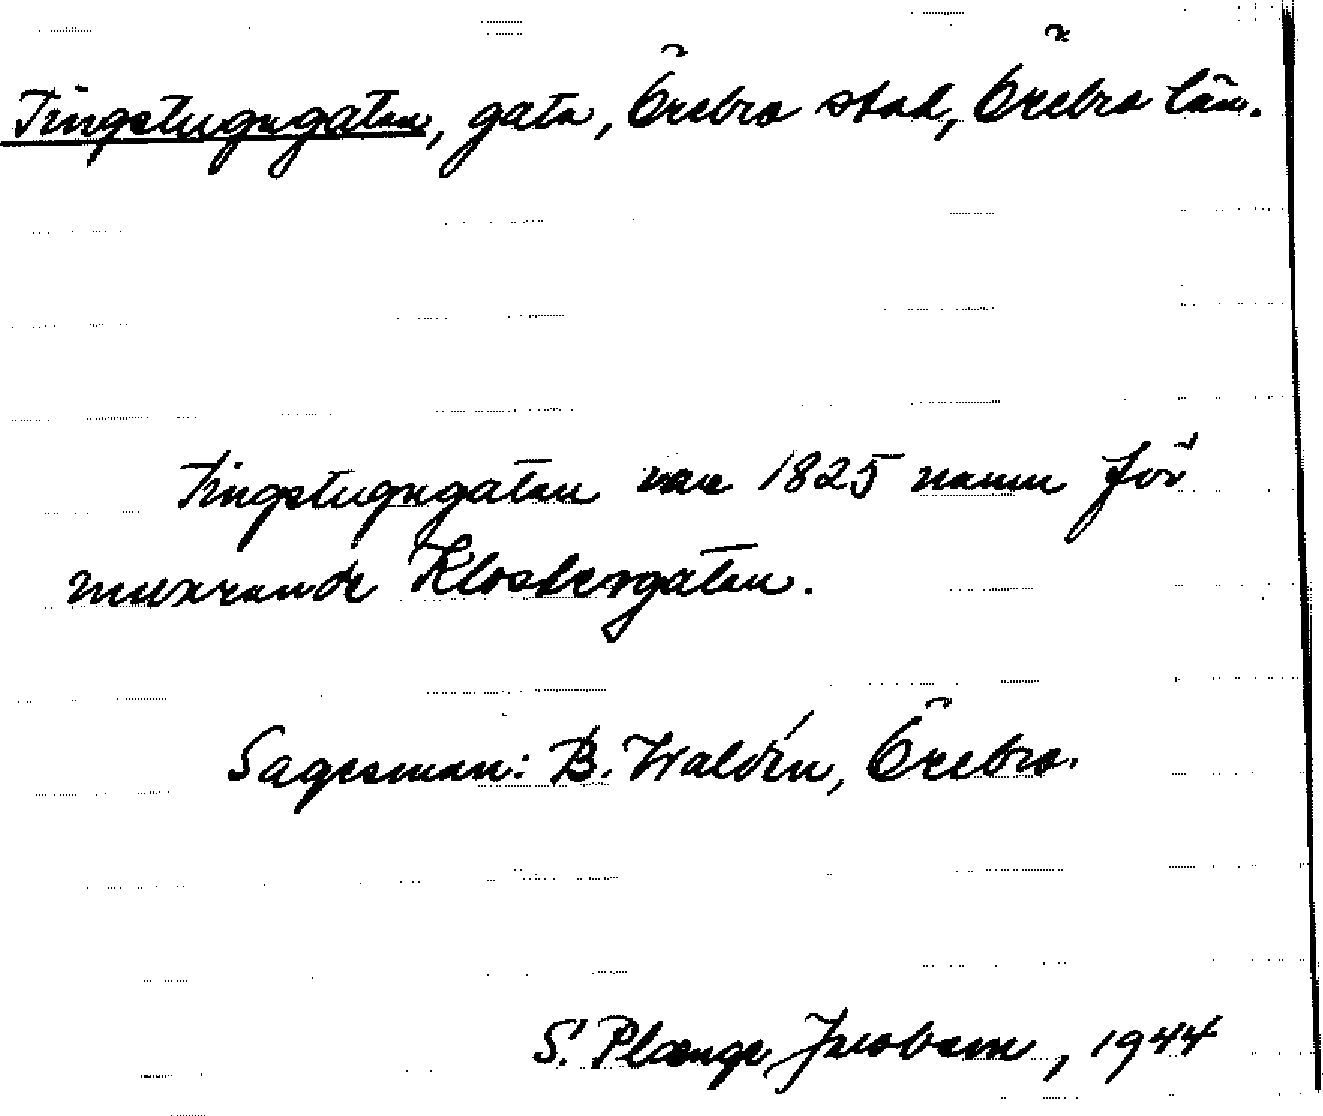 Tingstugugatan, gata, Örebro stad, Örebro län.
Tingstugugatan var 1825 namn för
nuvarande Klostergatan.
Sagesman: B. Waldén, Örebro.
S. Plænge Jacobson, 1944